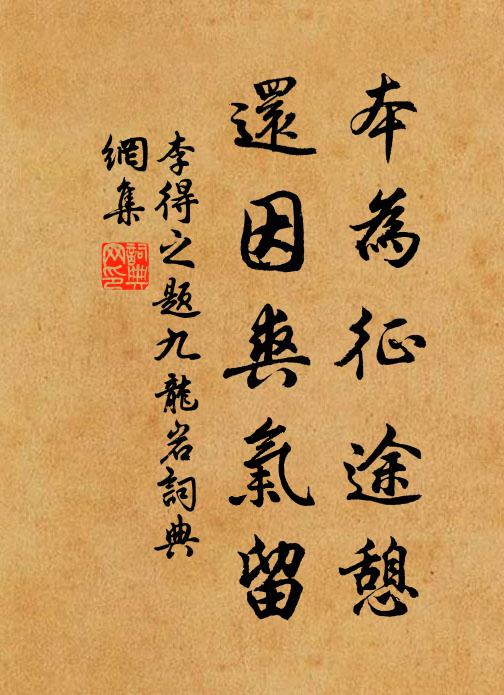 本為征途憩
還因爽氣留
李得之題九龍岩詞典
網集
詞典
网印